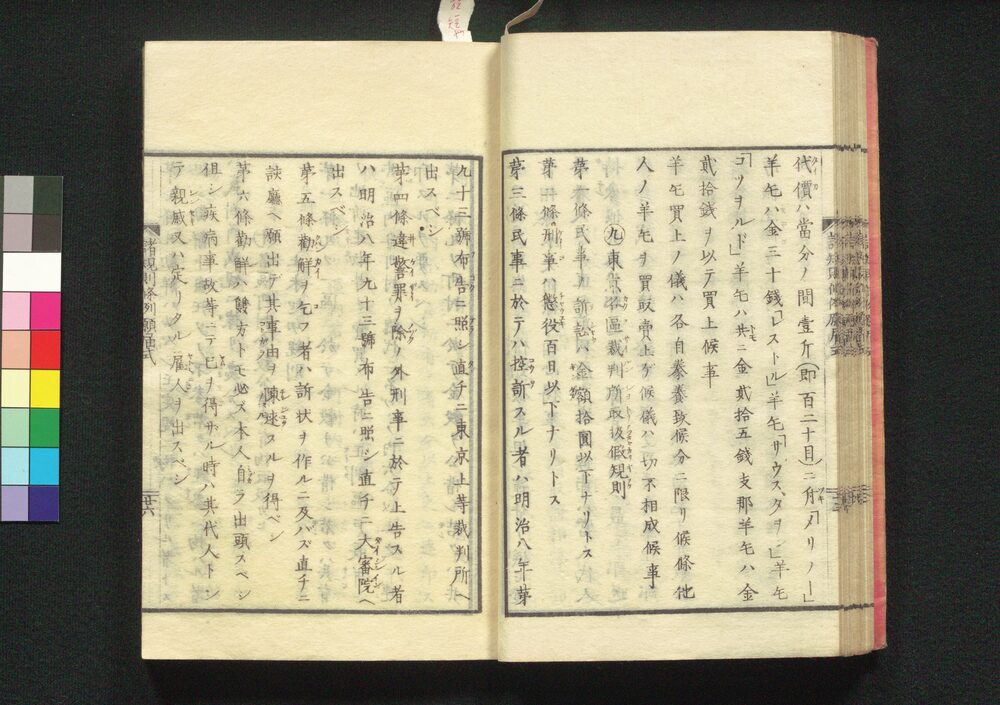 代價ハ當分ノ間壹斤(即百二十目)ニ付「メリノー」
羊毛ハ金三十錢「レストル」羊毛「サウスダヲン」羊毛
「コツヲルド」羊毛ハ共ニ金貳拾五錢支那羊毛ハ金
貳拾錢ヲ以テ買上候事
羊毛買上ノ儀ハ各自豢養致候分ニ限リ候條他
人ノ羊毛ヲ買取賣上ケ候儀ハ一切不相成候事
九 東京各區裁判所取扱假規則
第一條民事ノ訴訟ハ金額拾圓以下ナリトス
第二條刑事ハ懲役百日以下ナリトス
第三條民事ニ於テハ控訴スル者ハ明治八年第
九十三號布告ニ照シ直チニ東京上等裁判所ヘ
出スベシ
第四條違警罪ヲ除ノ外刑事ニ於テ上告スル者
ハ明治八年九十三號布告ニ照シ直チニ大審院ヘ
出スベシ
第五條勸解ヲ乞フ者ハ訴狀ヲ作ルニ及バズ直チニ
該廳ヘ願出デ其事由ヲ陳述スルヲ得ベシ
第六條勸解ハ雙方トモ必ズ本人自ラ出頭スベシ
但シ疾病事故等ニテ已ヲ得ザル時ハ其代人トシ
テ親戚又ハ定リタル雇人ヲ出スベシ
諸規則條例願届式
廿六